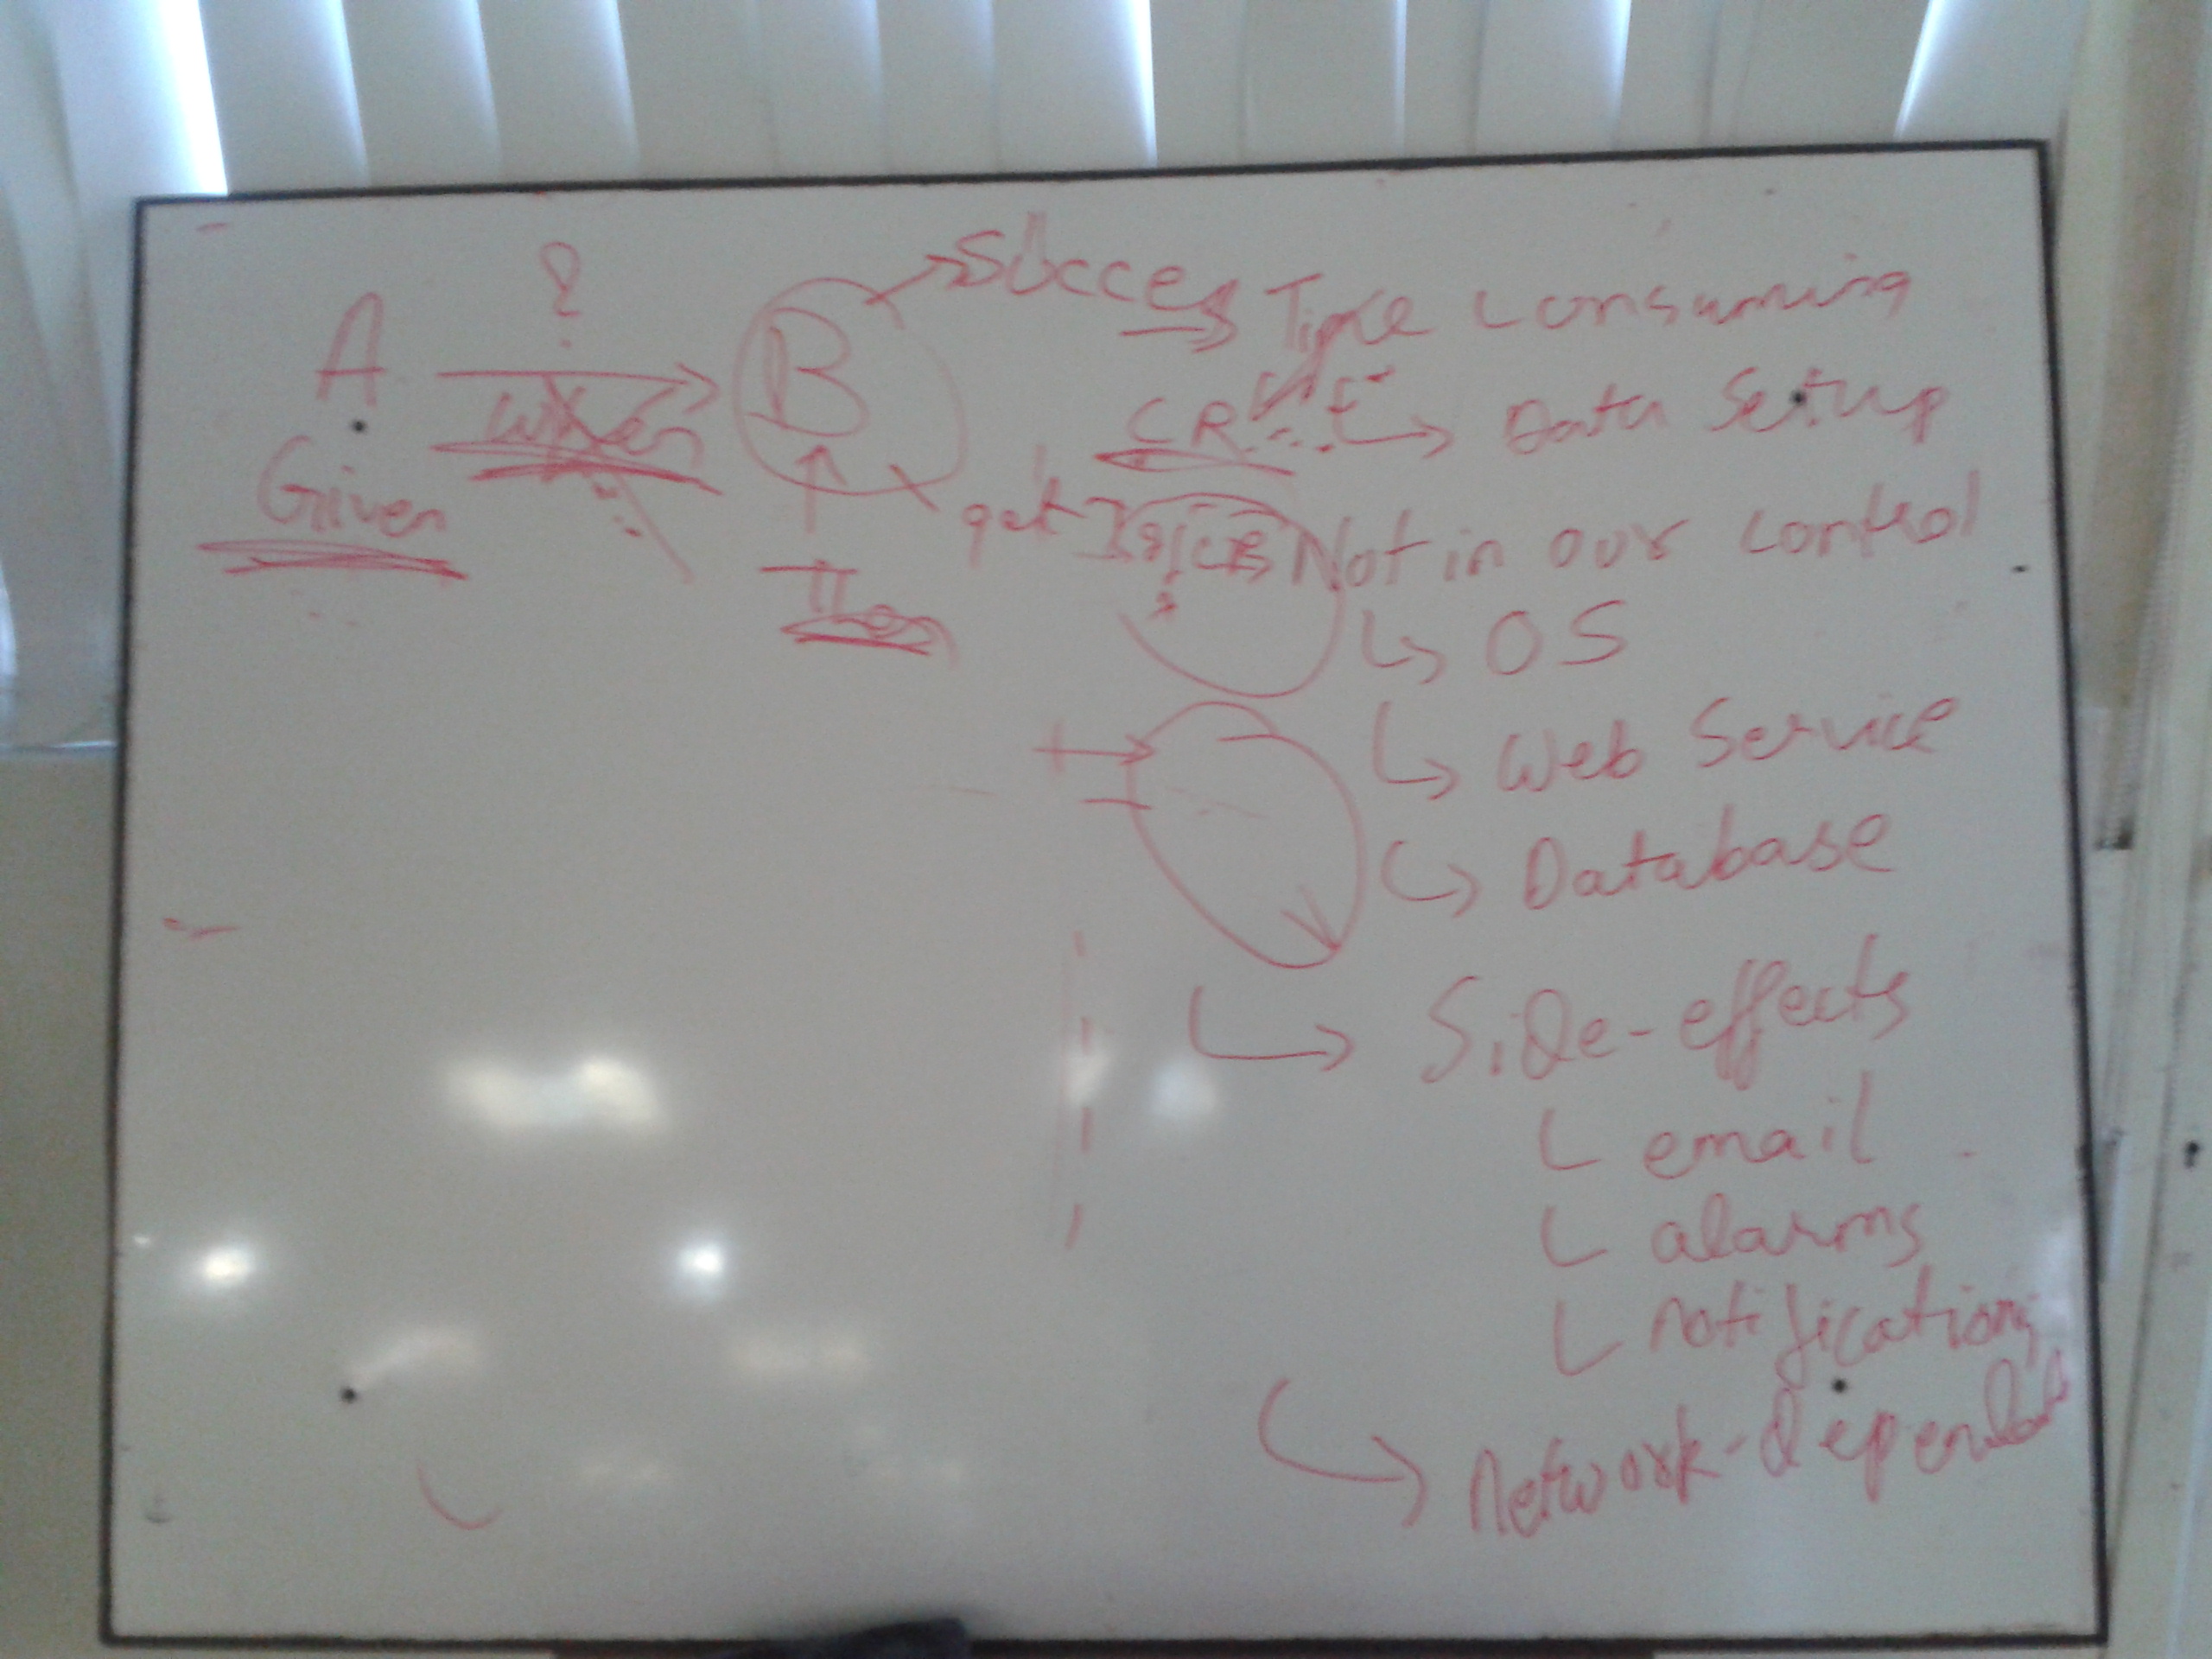 ?
A
When
Given
B
Then
Succes
get
CR
Time consuming
Data Setup
Not in our control
OS
Web Service
Database
Side-effects
email
alarms
notifications
Network-dependent